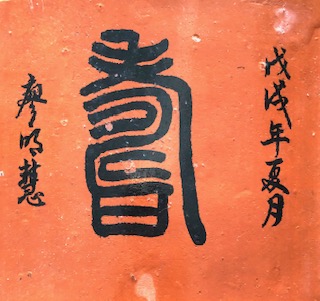 戊戌年夏月
壽
廖明慧